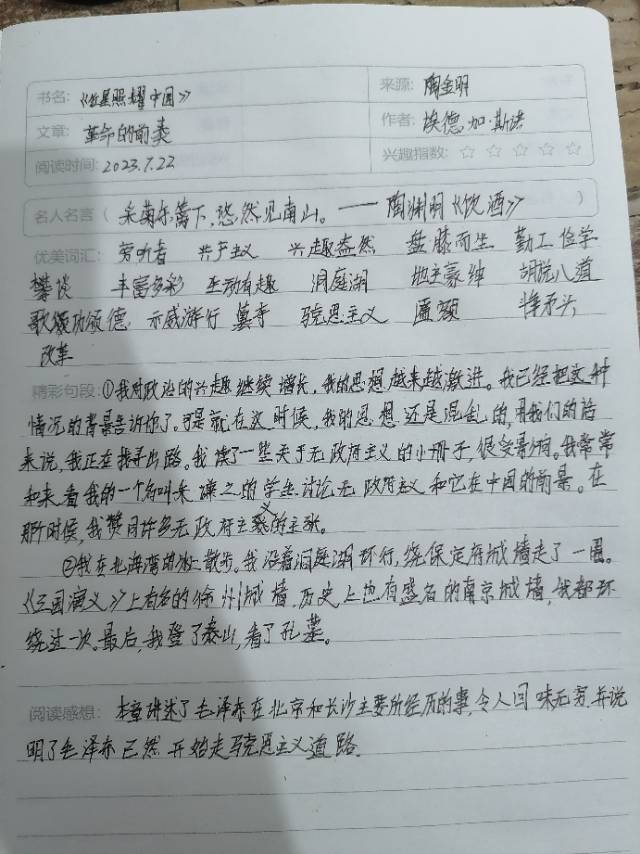 书名: 《红星照耀中国》 来源: 陶金羽
文章: 革命的前奏 作者: 埃德加·斯诺
阅读时间: 2023.7.22 兴趣指数: ☆ ☆ ☆ ☆ ☆
名人名言 ( 采菊东篱下,悠然见南山。——陶渊明《饮酒》 )
优美词汇: 旁听者 共产主义 兴趣盎然 盘膝而坐 勤工俭学
攀谈 丰富多彩 生动有趣 洞庭湖 地主豪绅 胡说八道
歌颂功颂德 示威游行 墓寺 马克思主义 匾额 矛头
改革
精彩句段: ①我对政治的兴趣继续增长,我的思想越来越激进。我已经把这种
情况的背景告诉你了。可是就在这时候,我的思想还是混乱的,用我们的话
来说,我正在找寻出路。我读了一些关于无政府主义的小册子,很受影响。我常常
和来看我的一个名叫朱谦之的学生讨论无政府主义和它在中国的前景。在
那时候,我赞同许多无政府主义的主张。
②我在北海湾的冰上散步。我沿着洞庭湖环行,绕保定府城墙走了一圈。
《三国演义》上有名的徐州城墙,历史上也有盛名的南京城墙,我都环
绕过一次。最后,我登了泰山,看了孔墓。
阅读感想: 本章讲述了毛泽东在北京和长沙主要所经历的事,令人回味无穷,并说
明了毛泽东已然开始走马克思主义道路.